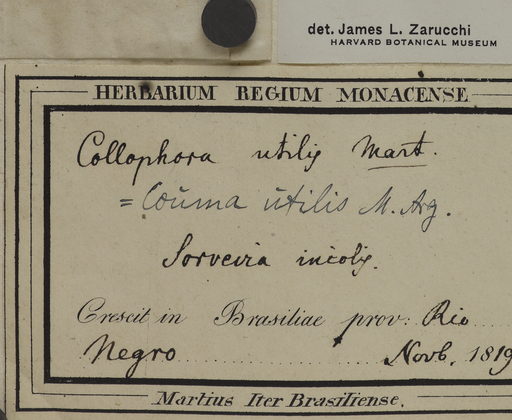 det. James L. Zarucchi
HARVARD BOTANICAL MUSEUM
HERBARIUM REGIUM MONACENSE
Collophora utilis Mart.
= Coūma ūtilis M. Arg.
Sorveira incolis.
Crescit in Brasiliae prov: Rio
Negro Novb. 1819
Martius Iter Brasiliense.